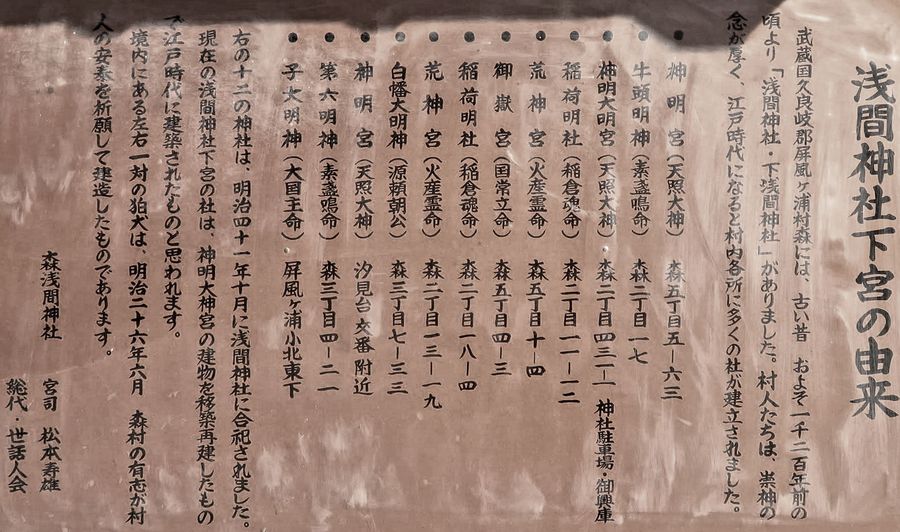 浅間神社下宮の由来
武蔵国久良岐郡屏風ヶ浦村森には、古い昔　およそ一千二百年前の
頃より「浅間神社・下浅間神社」がありました。村人たちは、崇神の
念が厚く、江戸時代になると村内各所に多くの社が建立されました。
●神明宮（天照大神）森五丁目五－六三
●牛頭明神（素盞鳴命）森二丁目一七
●柿明大明宮（天照大神）森二丁目四三－一　神社駐車場・御興庫
●稲荷明社（稲倉魂命）森二丁目一一－一二
●荒神宮（火産霊命）森五丁目十－四
●御嶽宮（国常立命）森五丁目四－三
●稲荷明社（稲倉魂命）森二丁目一八－四
●荒神宮（火産霊命）森二丁目一三－一九
●白幡大明神（源頼朝公）森三丁目七－三三
●神明宮（天照大神）汐見台交番附近
●第六明神（素盞鳴命）森三丁目四－二一
●子大明神（大国主命）屏風ヶ浦小北東下
右の十二の神社は、明治四十一年十月に浅間神社に合祀されました。
現在の浅間神社下宮の社は、神明大神宮の建物を移築再建したもの
で江戸時代に建築されたものと思われます。
境内にある左右一対の狛犬は、明治二十六年六月　森村の有志が村
人の安泰を祈願して建造したものであります。
森浅間神社　宮司　松本寿雄
総代・世話人会